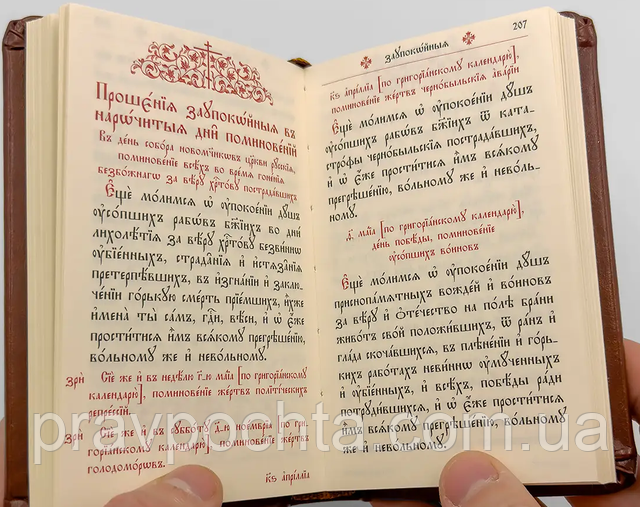 Прошє́нїѧ заꙋпокѡ́йныѧ въ
нарѡ́читыѧ дни̑ поминове́нїй
Въ де́нь собо́ра новомꙋ́чникѡвъ цр҃кви рꙋ́сскїѧ,
поминове́нїе всѣ́хъ во вре́мѧ гоне́нїѧ
безбо́жнагѡ за вѣ́рꙋ хрⷭ҇то́вꙋ пострада́вшихъ
Є҆щѐ мо́лимсѧ ѡ҆ ᲂу҆поко́енїи дꙋ́шъ
ᲂу҆со́пшихъ рабѡ́въ бж҃їихъ во дни̑
лихолѣ́тїѧ за вѣ́рꙋ хрⷭ҇то́вꙋ безви́ннѡ
ᲂу҆бїе́нныхъ, страда̑нїѧ и҆ и҆стѧза̑нїѧ
претерпѣ́вшихъ, въ и҆згна́нїи и҆ заклю-
че́нїи го́рькꙋю сме́рть прїе́мшихъ, и҆́хже
и҆мена̀ ты̀ са́мъ, гдⷭ҇и, вѣ́си, и҆ ѡ҆ є҆́же
прости́тисѧ и҆̀мъ всѧ́комꙋ прегрѣше́нїю,
во́льномꙋ же и҆ нево́льномꙋ.
Зрѝ Сїе́ же и҆ въ недѣ́лю г҃-ю ма́їа [по григорїа́нскомꙋ
календарю̀], поминове́нїе же́ртвъ полити́ческихъ
репре́ссїй.
Зрѝ Сїе́ же и҆ въ сꙋббѡ́тꙋ д҃-ю ноє́мврїа [по гри-
горїа́нскомꙋ календарю̀], поминове́нїе же́ртвъ
голодомо́рѡвъ.
к҃ѕ а҆прі́ллїа
Заꙋпокѡ́йныѧ 207
к҃ѕ а҆прі́ллїа [по григорїа́нскомꙋ календарю̀],
поминове́нїе же́ртвъ черно́быльскїѧ а҆ва́рїи
Є҆щѐ мо́лимсѧ ѡ҆ ᲂу҆поко́енїи дꙋ́шъ
ᲂу҆со́пшихъ рабѡ́въ бж҃їихъ ѿ ката-
стро́фы черно́быльскїѧ пострада́вшихъ,
и҆ ѡ҆ є҆́же прости́тисѧ и҆̀мъ всѧ́комꙋ
прегрѣше́нїю, во́льномꙋ же и҆ нево́ль-
номꙋ.
ѳ҃ ма́їа [по григорїа́нскомꙋ календарю̀],
де́нь побѣ́ды, поминове́нїе
ᲂу҆со́пшихъ во́инѡвъ
Є҆щѐ мо́лимсѧ ѡ҆ ᲂу҆поко́енїи дꙋ́шъ
приснопа́мѧтныхъ вожде́й и҆ во́инѡвъ
за вѣ́рꙋ и҆ ѻ҆те́чество на по́лѣ бра́ни
живо́тъ сво́й положи́вшихъ, ѿ ра́нъ и҆
гла́да сконча́вшихсѧ, въ плѣне́нїи и҆ го́рь-
кихъ рабо́тахъ неви́ннѡ ᲂу҆мꙋ́ченныхъ
и҆ ᲂу҆бїе́нныхъ, и҆ всѣ́хъ, побѣ́ды ра́ди
потрꙋди́вшихсѧ, и҆ ѡ҆ є҆́же прости́тисѧ
и҆̀мъ всѧ́комꙋ прегрѣше́нїю, во́льномꙋ
же и҆ нево́льномꙋ.
pravpochta.com.ua